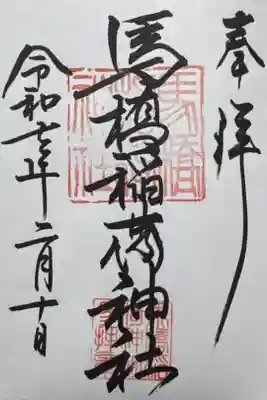 奉拝
馬橋稲荷神社
令和六年二月十日